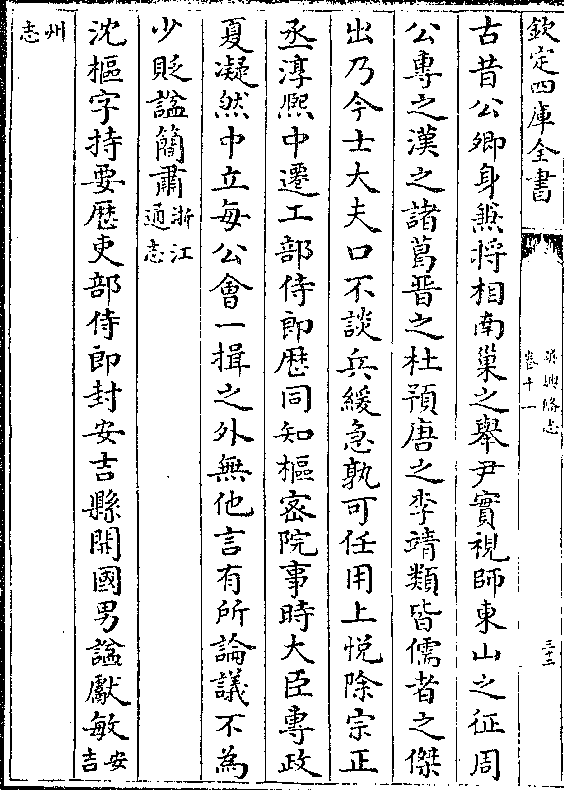 欽定四庫全書
吳興備志
卷十一
三三
古昔公卿身兼將相南巢之舉尹實視師東山之征周
公專之漢之諸葛晋之杜預唐之李靖類皆儒者之傑
出乃今士大夫口不談兵緩急孰可任用上悦除宗正
丞淳熙中遷工部侍郎歴同知樞密院事時大臣專政
夏凝然中立每公會一揖之外無他言有所論議不為
少貶諡簡肅浙江通志
沈樞字持要歴吏部侍郎封安吉縣開國男諡獻敏安吉
州志